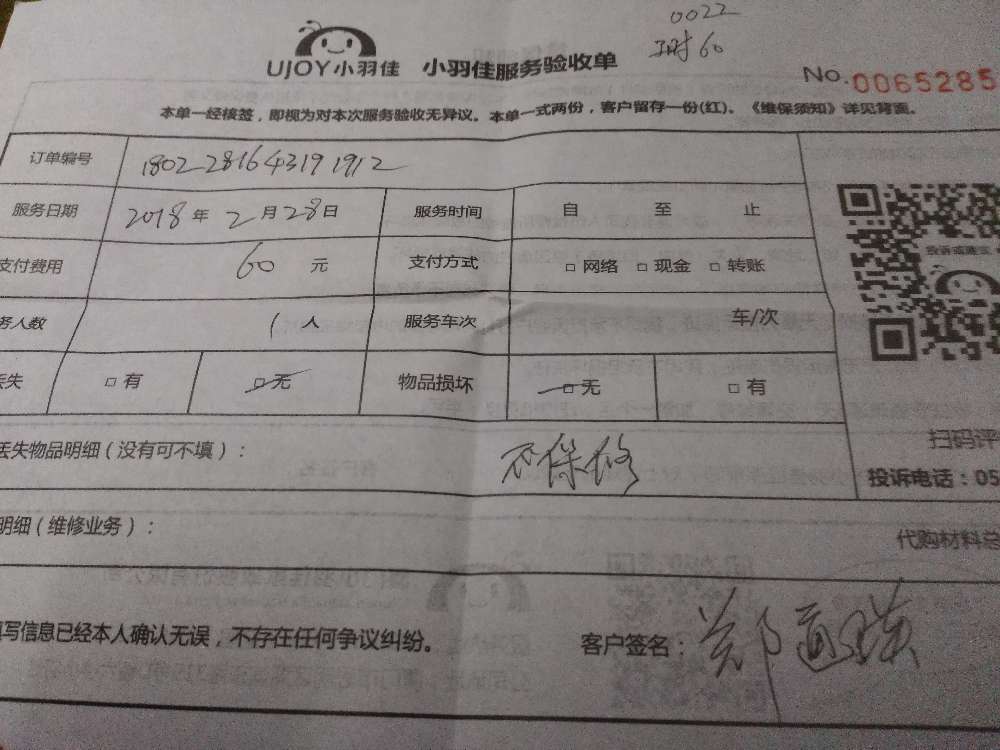 0022
60
UJOY小羽佳 小羽佳服务验收单
No.0065285
本单一经核签，即视为对本次服务验收无异议。本单一式两份，客户留存一份(红)。《维保须知》详见背面。
订单编号 1802281643191912
服务日期 2018年2月28日 服务时间 自 至 止
支付费用 60元 支付方式 □网络 □现金 □转账
务人数 1人 服务车次 车/次
丢失 □有 □无 物品损坏 □无 □有
丢失物品明细（没有可不填）： 不保修
扫码评
投诉电话：05
明细（维修业务）：
代购材料总
填写信息已经本人确认无误，不存在任何争议纠纷。 客户签名：郑